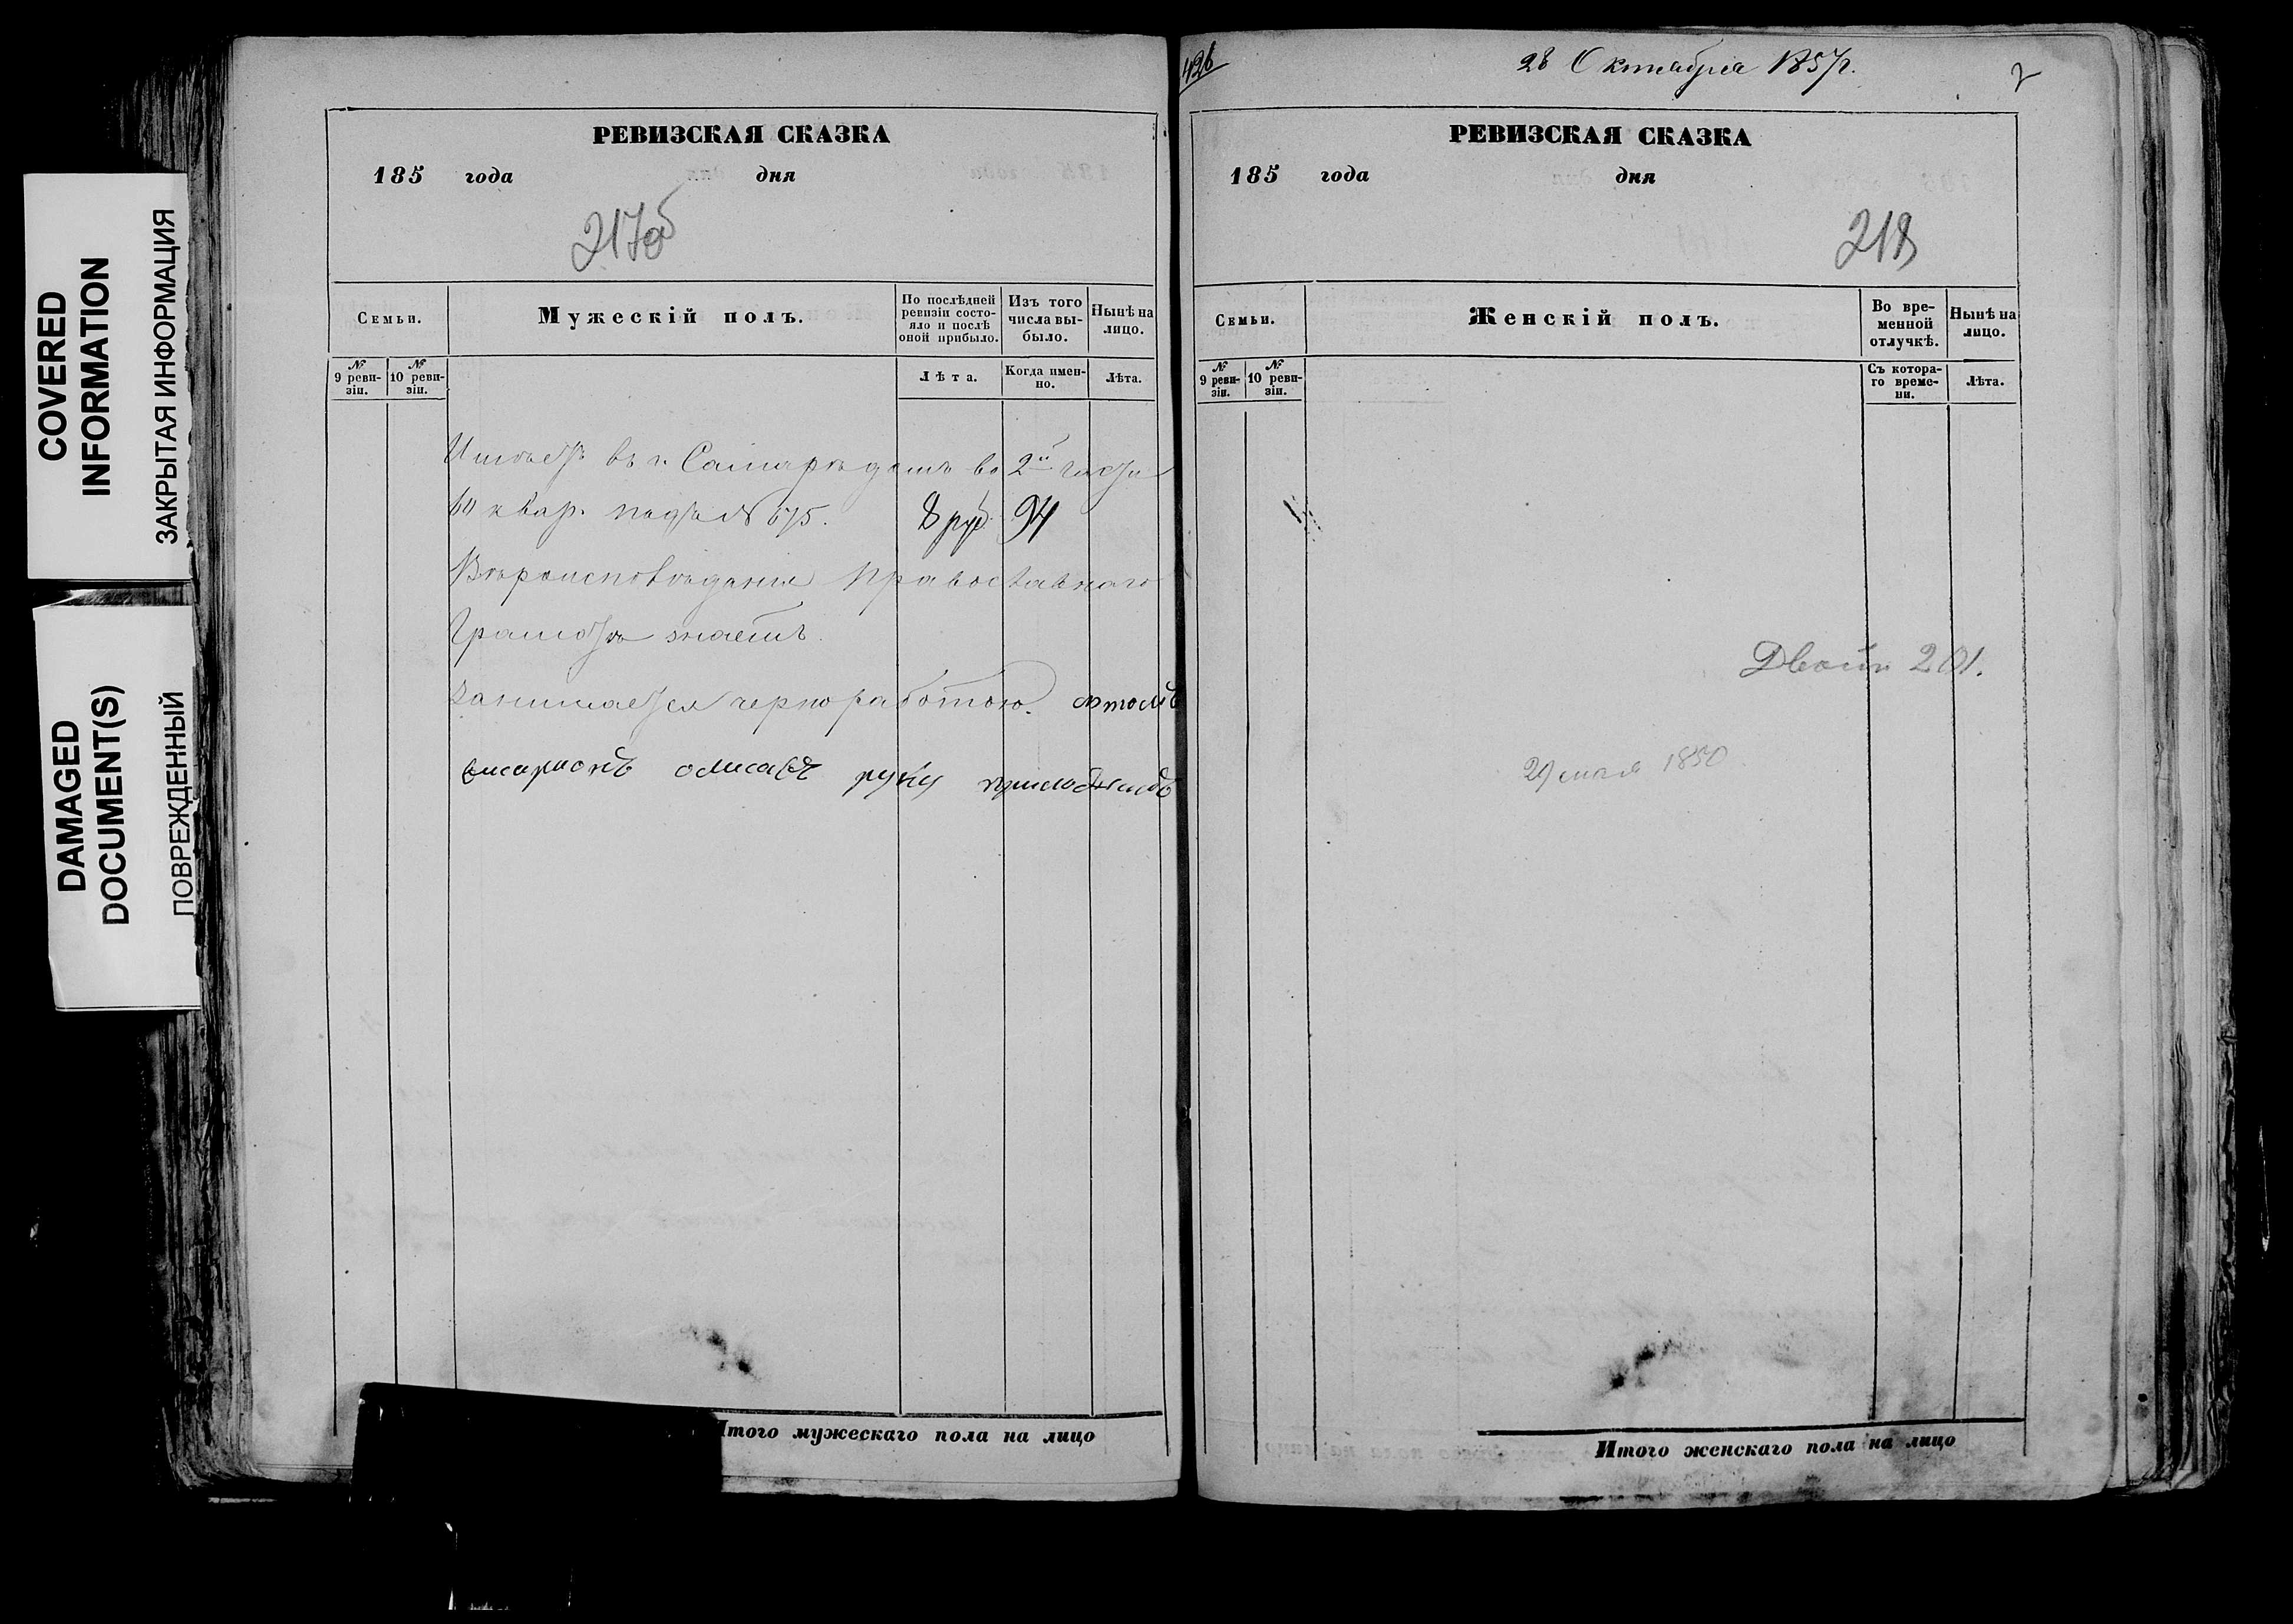 COVERED
INFORMATION
ЗАКРЫТАЯ ИНФОРМАЦИЯ
DAMAGED
DOCUMENT(S)
ПОВРЕЖДЕННЫЙ
РЕВИЗСКАЯ СКАЗКА
185 года дня
217об
Семьи.
Мужескій полъ.
По послѣдней ревизіи состояло и послѣ оной прибыло.
Изъ того числа выбыло.
Нынѣ на лицо.
№ 9 ревизіи.
№ 10 ревизіи.
Лѣта.
Когда именно.
Лѣта.
Имѣетъ въ г. Самарѣ домъ во 2й части
60 квар. подъ № 675. 8 руб. 94
Вѣроисповѣданія православнаго
Грамотѣ знаетъ.
Занимается чернoработою.
руку приложилъ
Итого мужескаго пола на лицо
426
28 Октября 1857г.
РЕВИЗСКАЯ СКАЗКА
185 года дня
218
Семьи.
Женскій полъ.
Во временной отлучкѣ.
Нынѣ на лицо.
№ 9 ревизіи.
№ 10 ревизіи.
Съ котораго времени.
Лѣта.
201.
29 мая 1850
Итого женскаго пола на лицо